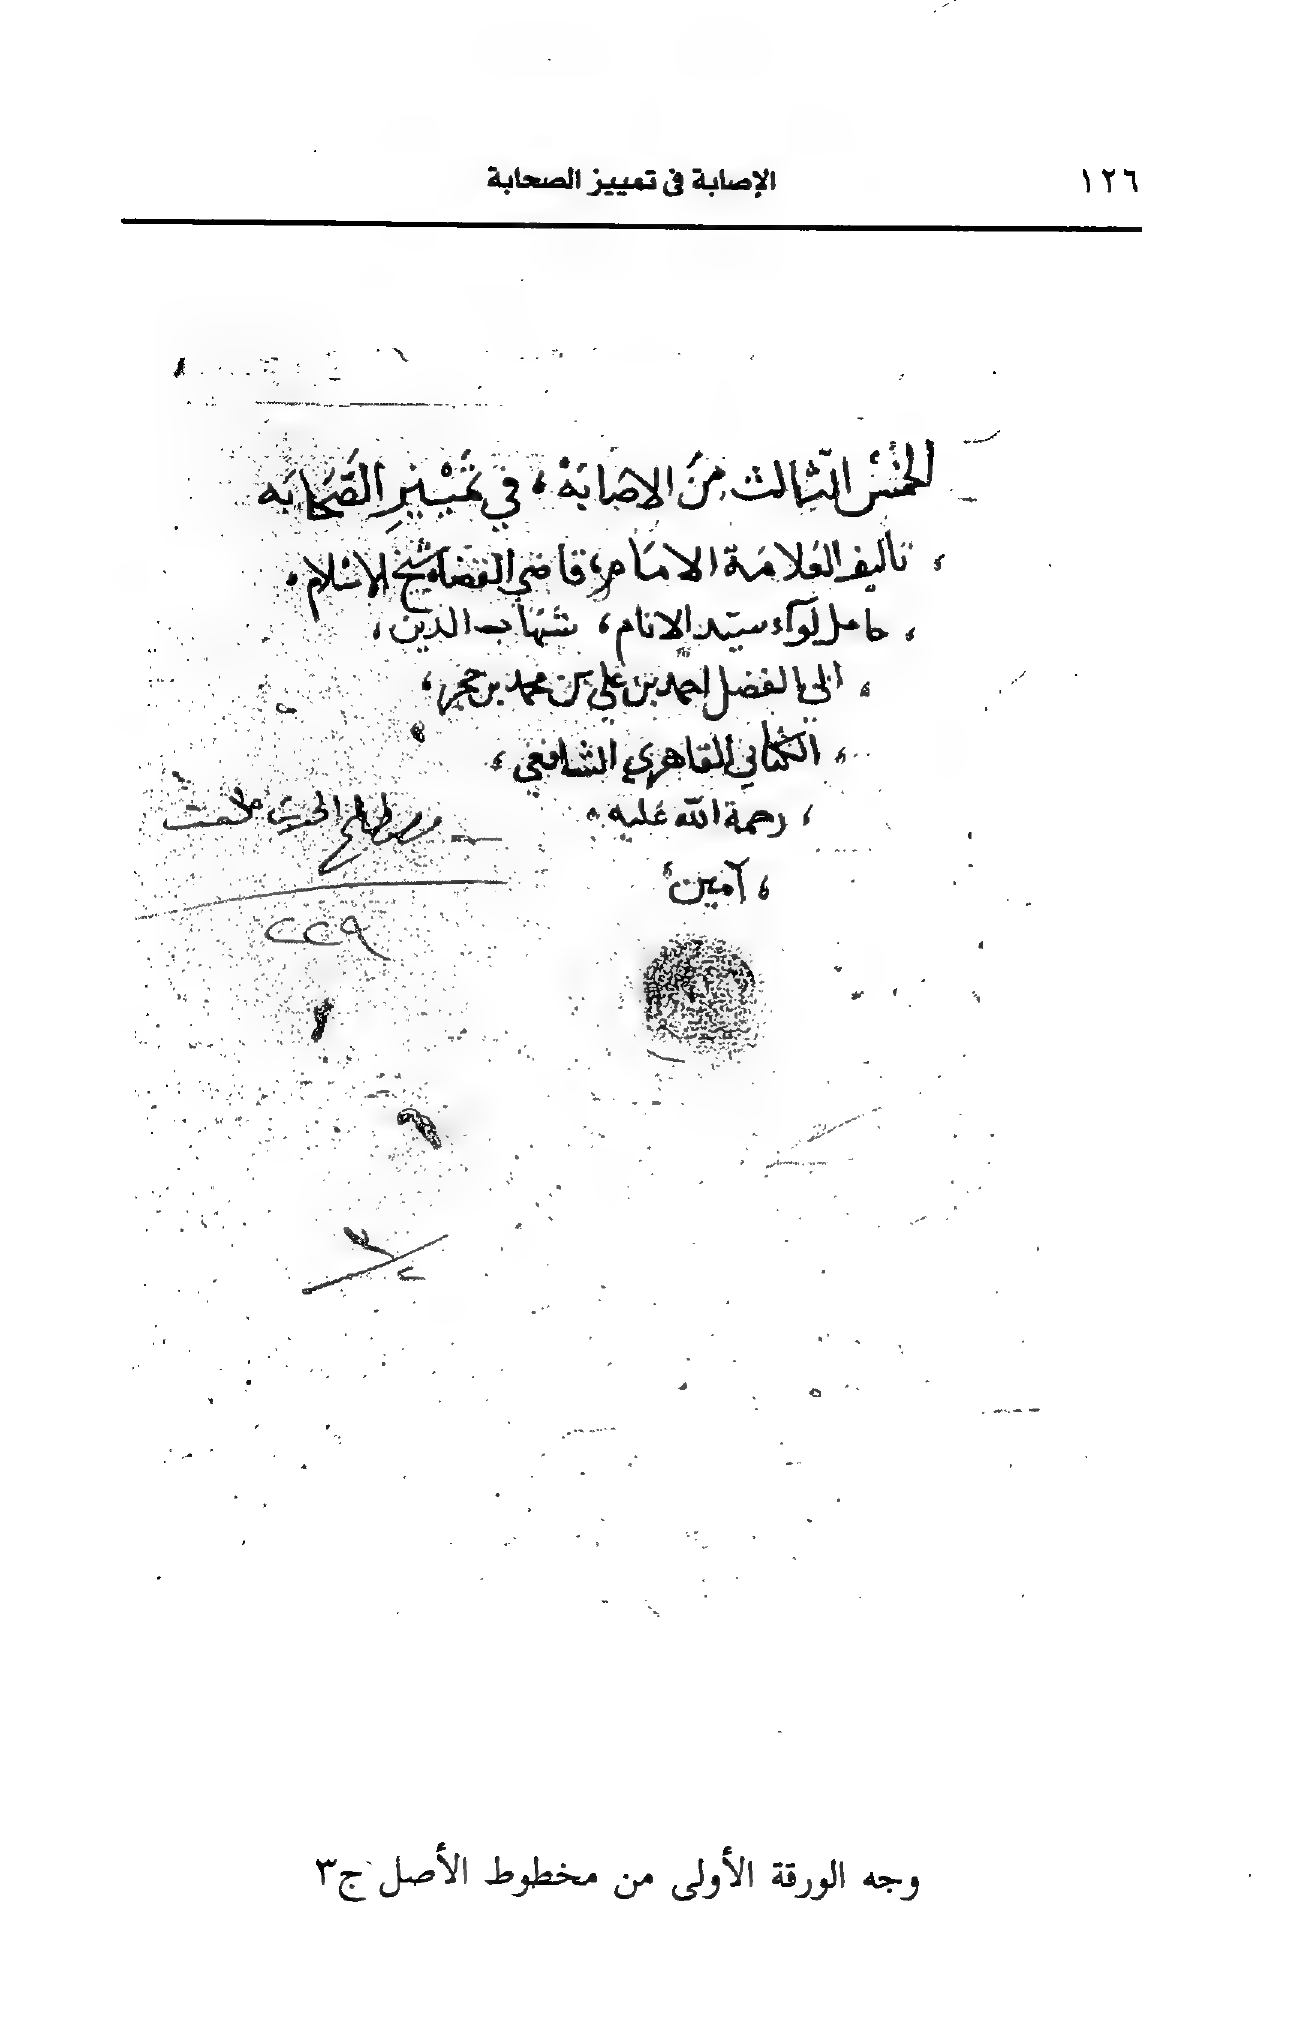 ١٢٦
الإصابة في تمييز الصحابة
الخمس الثالث من الاصابة، في تمييز الصحابه
تاليف العلامة الامام، قاضي القضاة شيخ الاسلام
حامل لوآء سيد الانام، شهاب الدين
ابى الفضل احمد بن علي بن محمد بن حجر
الكناني القاهري الشافعي
رحمة الله عليه
آمين
الحديث
٢٢٩
وجه الورقة الأولى من مخطوط الأصل ج٣